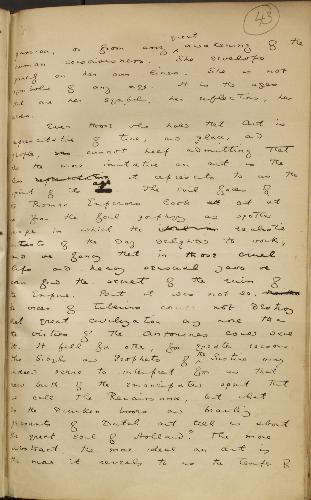 43
passion, or from any great awakening of the
human consciousness. She develops
purely on her own lines. She is not
symbolic of any age. It is the ages
that are her symbols, her reflections, her
Even those who hold that Art is
representative of time, and place, and
people, cannot help admitting that
the more imitative an art is the
less it represents to us the
spirit of its age. The evil faces of
the Roman Emperors look out at
us from the foul porphyry and spotted
jasper in which the realistic
artists of the day delighted to work,
and we fancy that in those cruel
lips and heavy sensual jaws we
can find the secret of the ruin of
the Empire. But it was not so.
The vices of Tiberius could not destroy
that great civilization any more than
the virtues of the Antonines could save
it. It fell for other, for greater reasons.
The Sibyls and Prophets of the Sistine may
indeed serve to interpret for us that
new birth of the emancipated spirit that
we call the Renaissance, but what
do the drunken boors and brawling
peasants of Dutch art tell us about
the great soul of Holland? The more
abstract, the more ideal an art is
the more it reveals to us the temper of